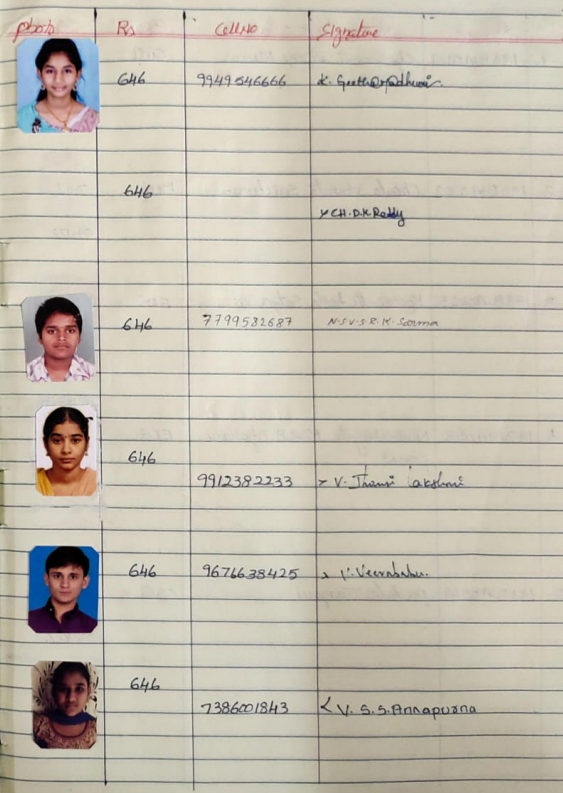 photo Rs Cell.No Signature
646 9949546666 K.
646
CH.D.K.Reddy
646 7799582687 N.S.V.S.R.K. Sarma
646
9912382233 V. Jhansi Lakshmi
646 9676638425 V. Veerababu.
646
7386001843 V. S.S. Annapurna